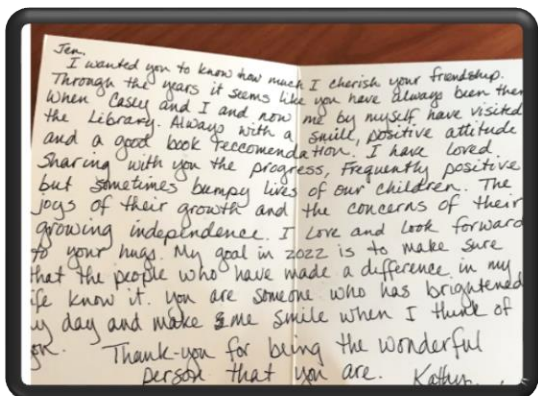 Jen.
I wanted you to know how much I cherish your friendship.
Through the years it seems like you have always been ther
When Casey and I and now me by myself have visited
the Library. Always with a smile, positive attitude
and a good book reccomendation. I have loved
Sharing with you the progress, Frequently positive
but sometimes bumpy lives of our children. The
joys of their growth and the concerns of their
growing independence. I Love and Look forward
to your hugs. My goal in 2022 is to make sure
that the people who have made a difference in my
ife know it. You are someone who has brightened
y day and make me smile when I think of
ou. Thank-you for being the wonderful
person that you are. Kathy.